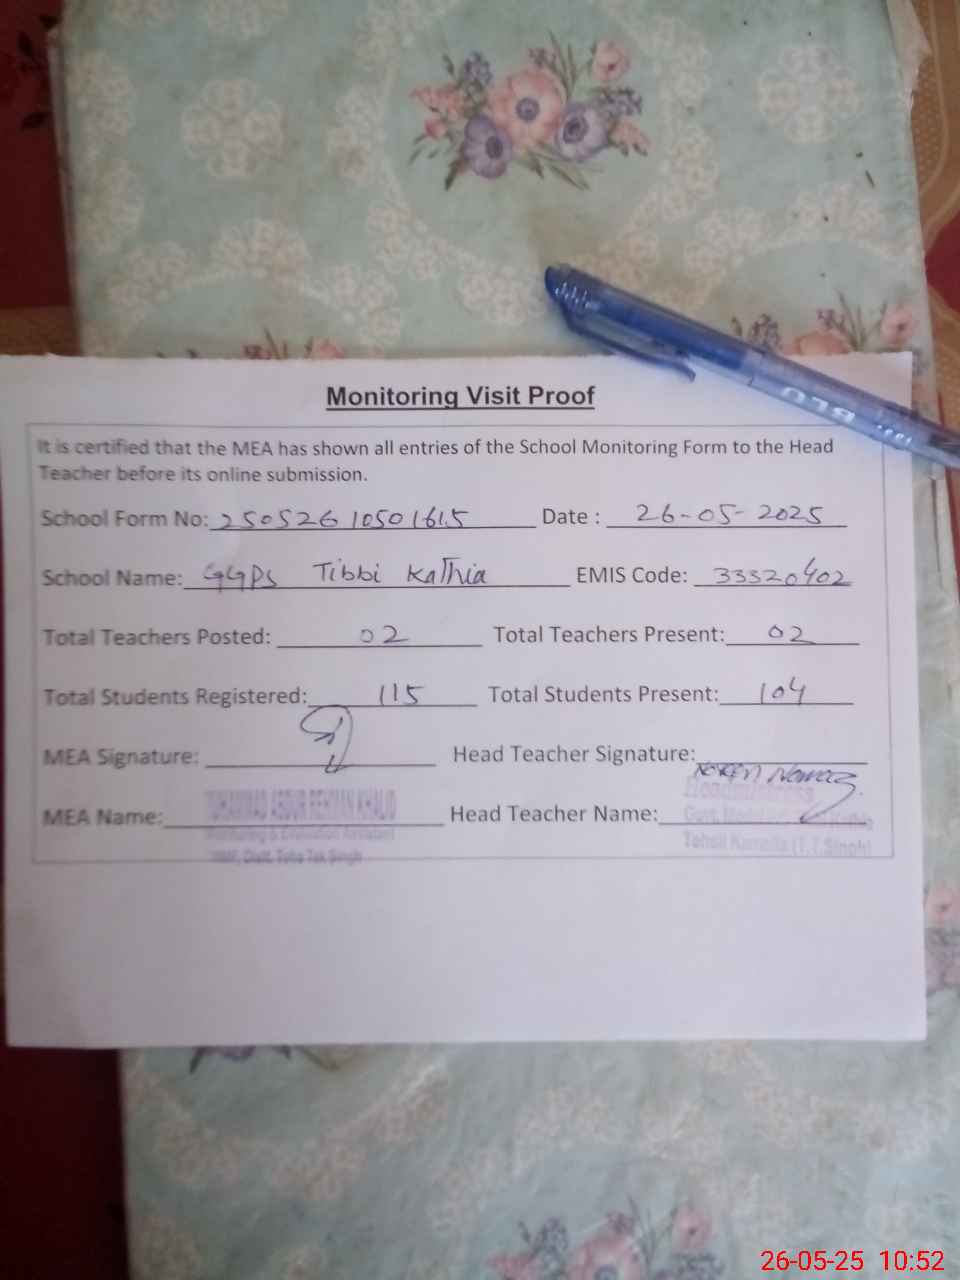 Monitoring Visit Proof
It is certified that the MEA has shown all entries of the School Monitoring Form to the Head
Teacher before its online submission.
School Form No: 25052610501615 Date : 26-05-2025
School Name: GGPS Tibbi Kathia EMIS Code: 33320402
Total Teachers Posted: 02 Total Teachers Present: 02
Total Students Registered: 115 Total Students Present: 104
MEA Signature: Head Teacher Signature:
Nawaz
MEA Name: MUHAMMAD ABDUR REHMAN KHALID Head Teacher Name: Headmistress
Monitoring & Evaluation Assistant Govt.
Distt. Toba Tek Singh Tehsil Kamalia (T.T.Singh)
BLU
26-05-25 10:52